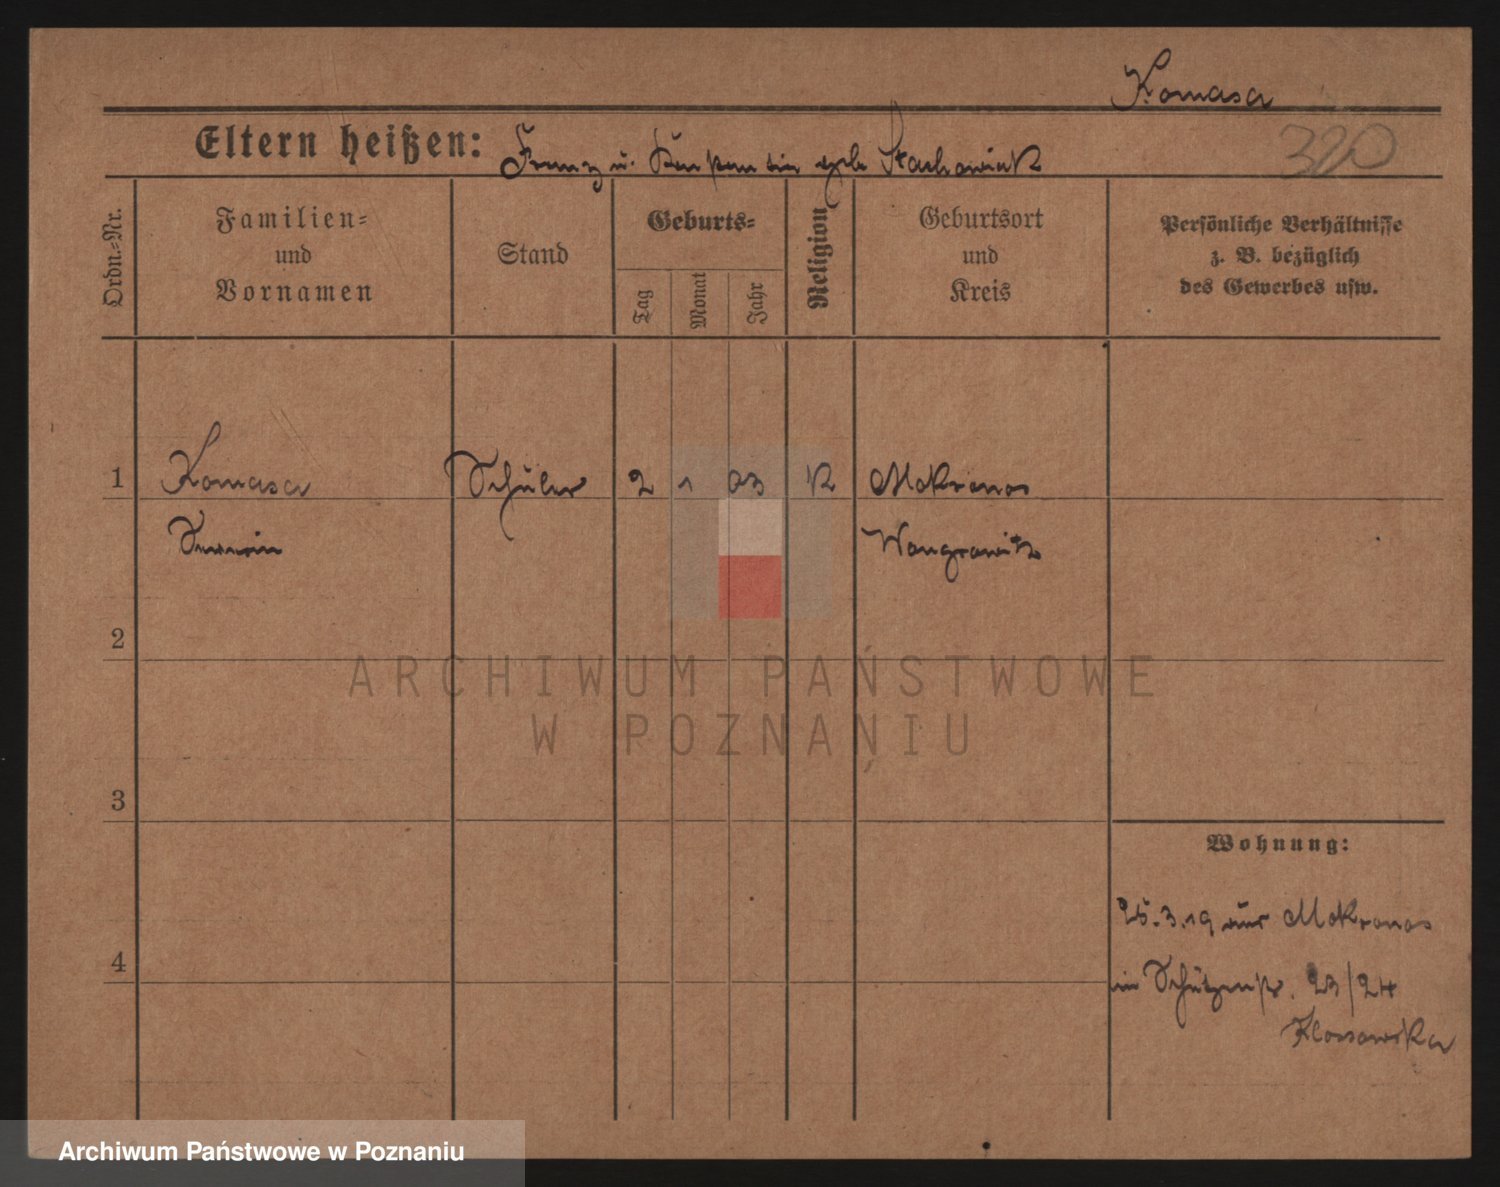 Komasa
320
Eltern heißen: Franz u. geb. Stachowiak
Ordn.=Nr.
Familien=
und
Vornamen
Stand
Geburts=
Tag
Monat
Jahr
Religion
Geburtsort
und
Kreis
Persönliche Verhältnisse
z. B. bezüglich
des Gewerbes usw.
1 Komasa Schüler 2 1 03 K Mokronos
Severin Wongrowitz
2
ARCHIWUM PAŃSTWOWE
W POZNANIU
3
Wohnung:
25.3.19 aus Mokronos
4
in Schützenstr. 23/24
Klossowska
Archiwum Państwowe w Poznaniu